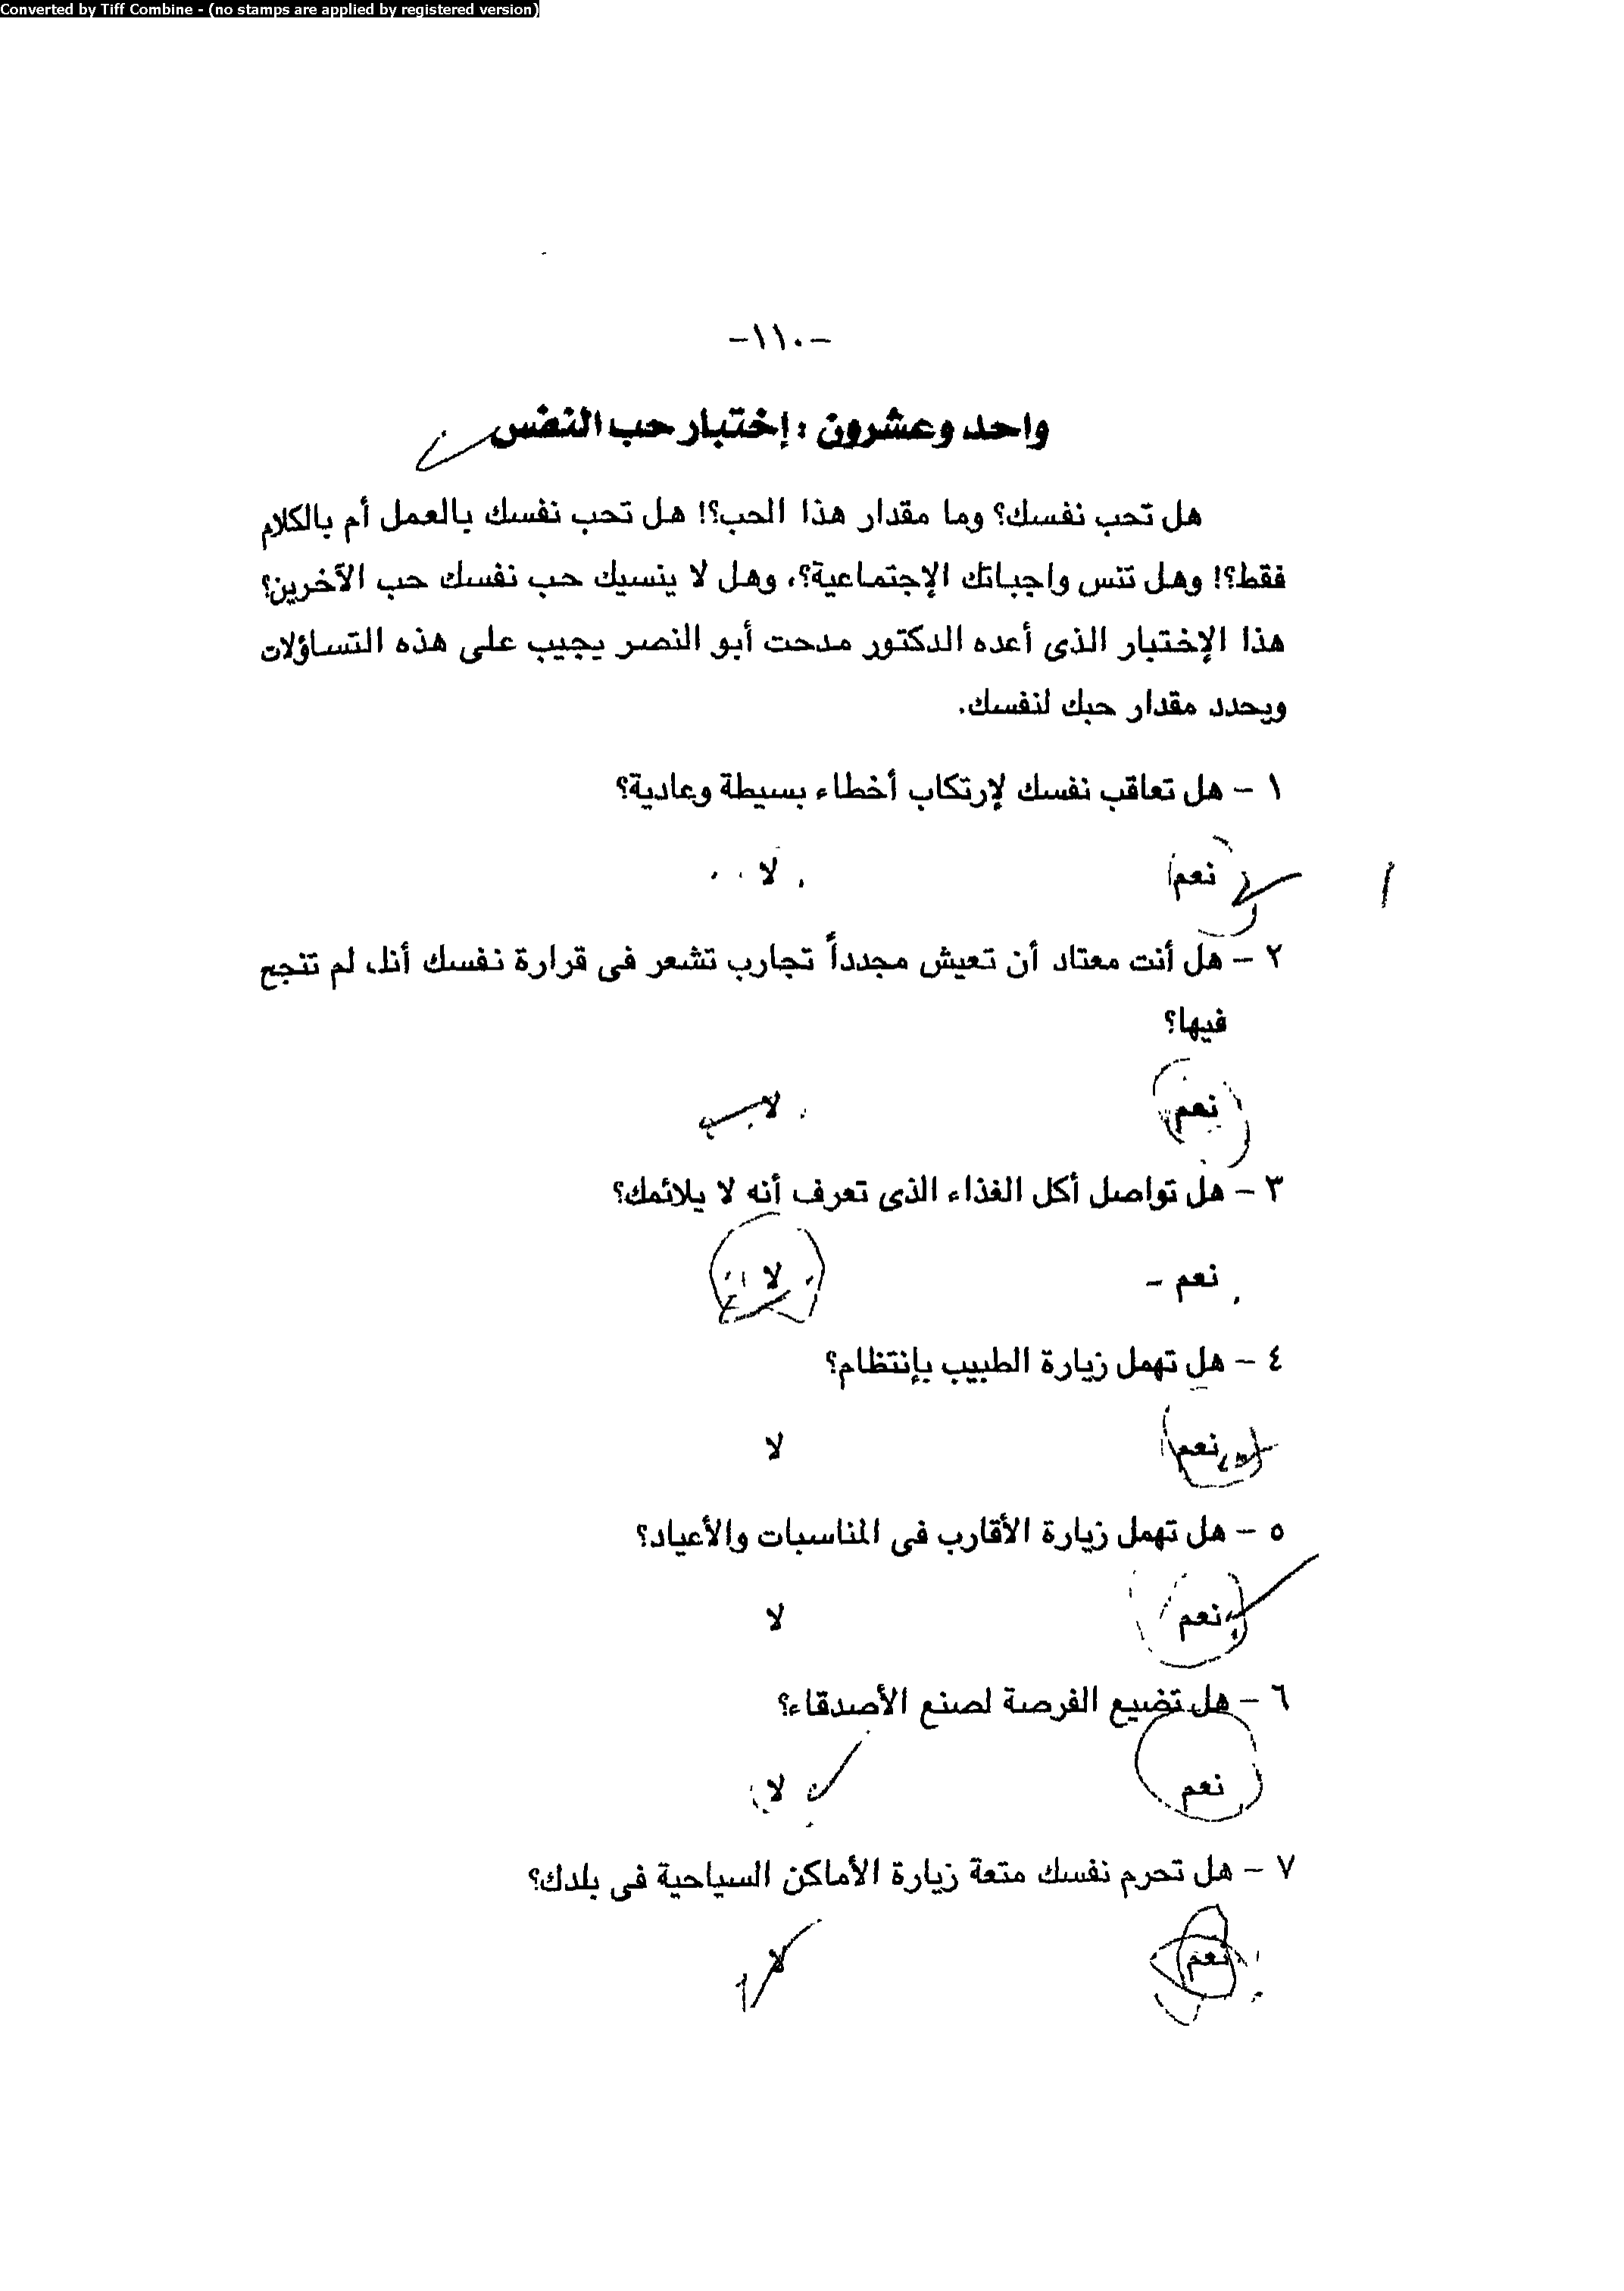 Converted by Tiff Combine - (no stamps are applied by registered version)
-١١٠-
واحد وعشرون : إختبار حب النفس
هل تحب نفسك؟ وما مقدار هذا الحب؟! هل تحب نفسك بالعمل أم بالكلام
فقط؟! وهل تنس واجباتك الإجتماعية؟، وهل لا ينسيك حب نفسك حب الآخرين؟
هذا الإختبار الذى أعده الدكتور مدحت أبو النصر يجيب على هذه التساؤلات
ويحدد مقدار حبك لنفسك.
١ - هل تعاقب نفسك لإرتكاب أخطاء بسيطة وعادية؟
نعم لا
٢ - هل أنت معتاد أن تعيش مجدداً تجارب تشعر فى قرارة نفسك أنك لم تنجح
فيها؟
نعم لا
٣ - هل تواصل أكل الغذاء الذى تعرف أنه لا يلائمك؟
نعم - لا
٤ - هل تهمل زيارة الطبيب بإنتظام؟
نعم لا
٥ - هل تهمل زيارة الأقارب فى المناسبات والأعياد؟
نعم لا
٦ - هل تضيع الفرصة لصنع الأصدقاء؟
نعم لا
٧ - هل تحرم نفسك متعة زيارة الأماكن السياحية فى بلدك؟
نعم لا